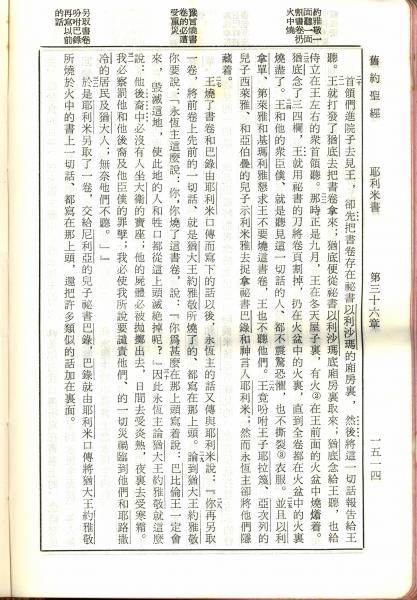 舊約聖經　耶利米書　第三十六章　一五一四
約雅敬一
面聽一面
割書卷扔
火中燒
首領們進院子去見王，卻先把書卷存在祕書以利沙瑪的廂房裏，然後將這一切話報告給王
聽。王就打發了猶底去把書卷拿來，猶底便從祕書以利沙瑪底廂房裏取來；猶底念給王聽，也給
侍立在王左右的衆首領聽。那時正是九月，王在冬天屋子裏，有火②在王前面的火盆中燒着。
猶底念了三四欄，王就用祕書的刀將卷頁割掉，扔在火盆中的火裏，直到全卷都在火盆中的火裏
燒盡了。王和他的衆臣僕、就是聽見這一切話的人、都不震驚恐懼，也不撕裂③衣服。並且以利
拿單、第萊雅和基瑪利雅懇求王不要燒這書卷，王也不聽他們。王竟吩咐王子耶拉篾、亞次列的
兒子西萊雅、和亞伯疊的兒子示利米雅去捉拿祕書巴錄和神言人耶利米；然而永恆主卻將他們隱
藏着。
豫言燒書
卷的必遭
受重災
王燒了書卷和巴錄由耶利米口傳而寫下的話以後，永恆主的話又傳與耶利米說：『你再另取
一卷，將前卷上先前的一切話、就是猶大王約雅敬所燒了的、都寫在那上頭。論到猶大王約雅敬
你要說：「永恆主這麼說：你，你燒了這書卷，說：『你爲甚麼在那上頭寫着說：巴比倫王一定會
來，毀滅這地，使此地的人和牲口都從這上頭滅絶掉呢？』因此永恆主論猶大王約雅敬就這麼
說：他後裔中必沒有人坐大衛的寶座；他的屍體必被拋擲出去，日間去受炎熱，夜裏去受寒霜。
我必察罰他和他後裔及他臣僕的罪孽；我必使我所說要譴責他們、的一切災禍臨到他們和耶路撒
冷的居民及猶大人；無奈他們不聽。」』
另取書卷
吩咐巴錄
再寫以前
的話
於是耶利米另取了一卷，交給尼利亞的兒子祕書巴錄，巴錄就由耶利米口傳將猶大王約雅敬
所燒於火中的書上一切話、都寫在那上頭，還把許多類似的話加在裏面。